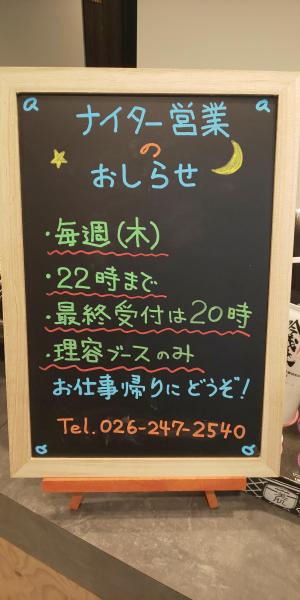 ナイター営業
の
おしらせ
・毎週(木)
・22時まで
・最終受付は20時
・理容ブースのみ
お仕事帰りにどうぞ!
Tel. 026-247-2540